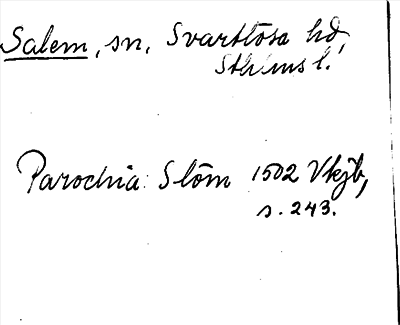 Salem, sn, Svartlösa hd,
Sthlms l.
Parochia Slöm 1502 Vkjb,
s. 243.